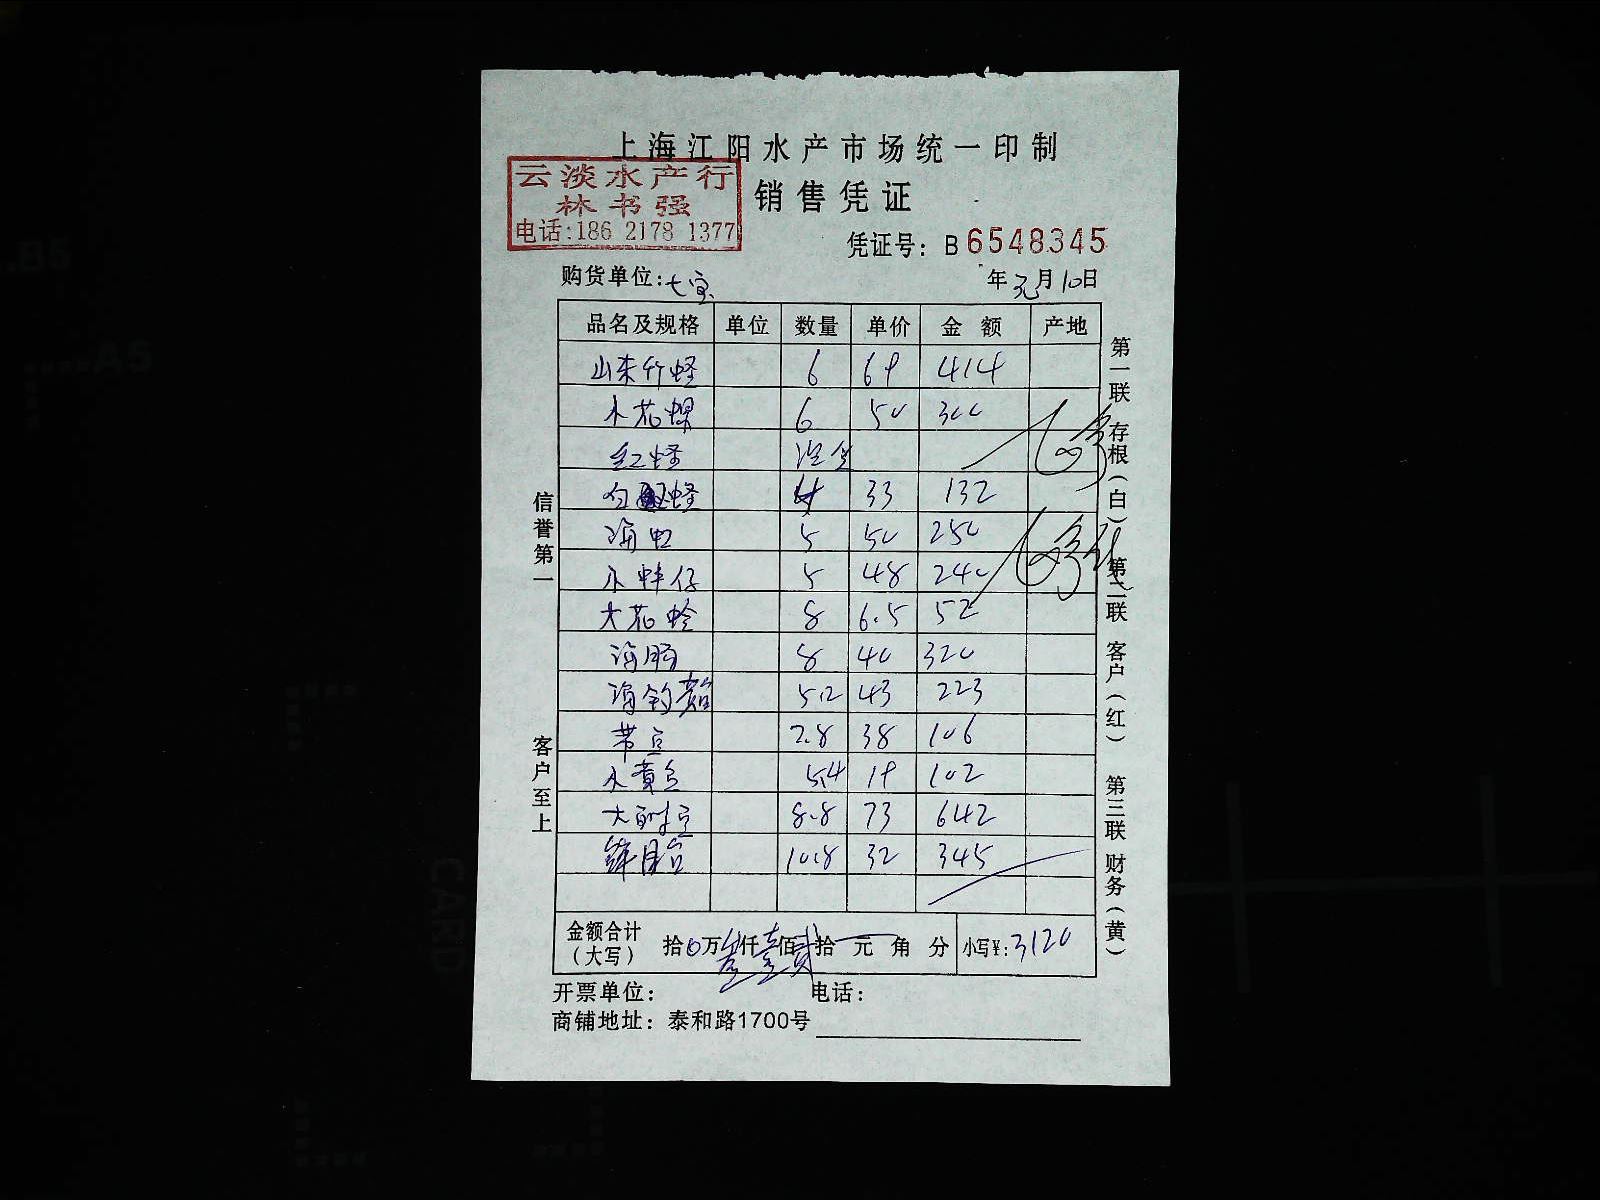 上海江阳水产市场统一印制
云淡水产行
林书强
电话:186 2178 1377
销售凭证
凭证号: B 6548345
购货单位:七宝 年元月10日
品名及规格 单位 数量 单价 金额 产地
山东竹蛏 6 69 414
小花螺 6 50 300
红蛏 没全
白蛏 4 33 132
海虹 5 50 250
小蚌仔 5 48 240
大花蛤 8 6.5 52
海肠 8 40 320
海钓 5.2 43 223
带 2.8 38 106
小黄 5.4 19 102
大 8.8 73 642
10.8 32 345
金额合计
(大写) 拾0万叁仟壹佰贰拾一元角分 小写¥:3120
开票单位: 电话:
商铺地址: 泰和路1700号
信誉第一 客户至上
第一联 存根(白) 第二联 客户(红) 第三联 财务(黄)